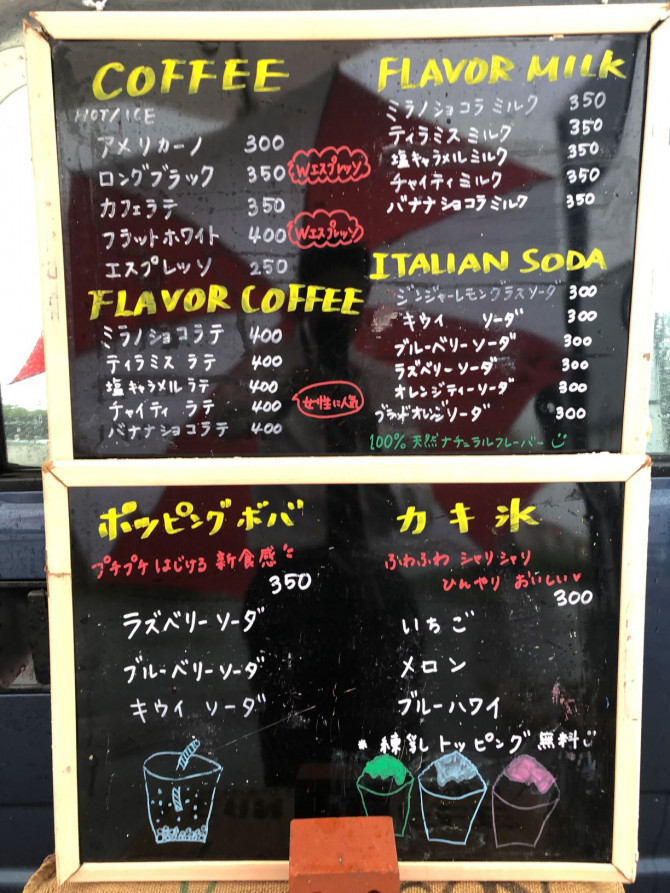 COFFEE
HOT/ICE
アメリカーノ 300
ロングブラック 350 Wエスプレッソ
カフェラテ 350
フラットホワイト 400 Wエスプレッソ
エスプレッソ 250
FLAVOR COFFEE
ミラノショコラテ 400
ティラミス ラテ 400
塩キャラメル ラテ 400
チャイティ ラテ 400 女性に人気
バナナショコラテ 400
FLAVOR MILK
ミラノショコラミルク 350
ティラミス ミルク 350
塩キャラメルミルク 350
チャイティミルク 350
バナナショコラミルク 350
ITALIAN SODA
ジンジャーレモングラスソーダ 300
キウイ ソーダ 300
ブルーベリーソーダ 300
ラズベリーソーダ 300
オレンジティーソーダ 300
ブラッドオレンジソーダ 300
100% 天然ナチュラルフレーバー
ポッピングボバ
プチプチはじける 新食感
350
ラズベリーソーダ
ブルーベリーソーダ
キウイ ソーダ
カキ氷
ふわふわ シャリシャリ
ひんやり おいしい♥
300
いちご
メロン
ブルーハワイ
* 練乳トッピング無料